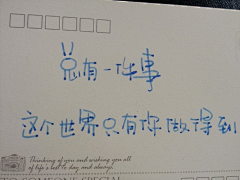 总有一件事
这个世界只有你做得到
Thinking of you and wishing you all
of life's best to day and always!